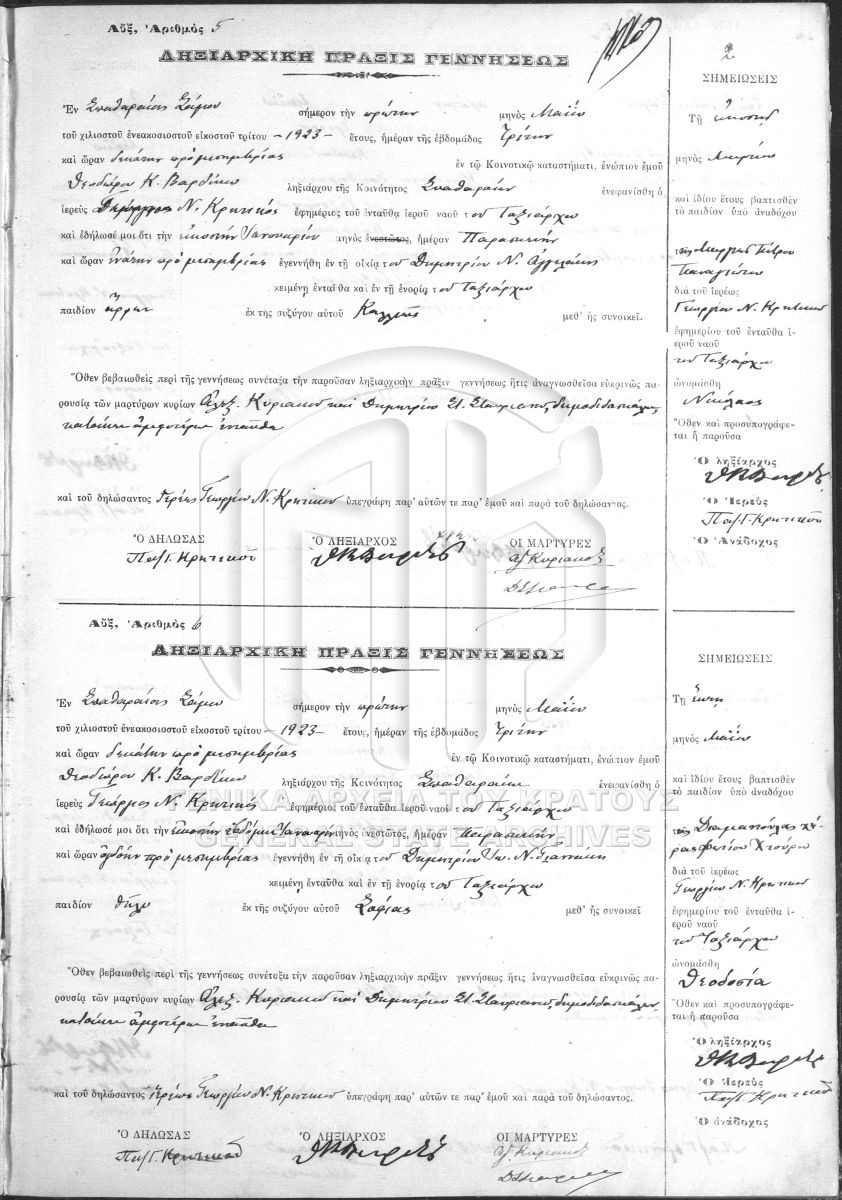 Αὔξ. Ἀριθμὸς 5
ΛΗΞΙΑΡΧΙΚΗ ΠΡΑΞΙΣ ΓΕΝΝΗΣΕΩΣ
Ἐν Σπαθαραίοις Σάμου σήμερον τὴν πρώτην μηνὸς Μαΐου
τοῦ χιλιοστοῦ ἐνεακοσιοστοῦ εἰκοστοῦ τρίτου -1923- ἔτους, ἡμέραν τῆς ἑβδομάδος Τρίτην
καὶ ὥραν δεκάτην πρὸ μεσημβρίας ἐν τῷ Κοινοτικῷ καταστήματι, ἐνώπιον ἐμοῦ
Θεοδώρου Κ. Βαρδίκου ληξιάρχου τῆς Κοινότητος Σπαθαραίων ἐνεφανίσθη ὁ
ἱερεὺς Γεώργιος Ν. Κρητικὸς ἐφημέριος τοῦ ἐνταῦθα ἱεροῦ ναοῦ τοῦ Ταξιάρχου
καὶ ἐδήλωσέ μοι ὅτι τὴν εἰκοστὴν Ἰανουαρίου μηνὸς ἐνεστῶτος, ἡμέραν Παρασκευὴν
καὶ ὥραν ἐνάτην πρὸ μεσημβρίας ἐγεννήθη ἐν τῇ οἰκίᾳ τοῦ Δημητρίου Ν. Ἀγγελάκη
κειμένῃ ἐνταῦθα καὶ ἐν τῇ ἐνορίᾳ τοῦ Ταξιάρχου
παιδίον ἄρρεν ἐκ τῆς συζύγου αὐτοῦ Καλλιόπης μεθ' ἧς συνοικεῖ.
Ὅθεν βεβαιωθεὶς περὶ τῆς γεννήσεως συνέταξα τὴν παροῦσαν ληξιαρχικὴν πρᾶξιν γεννήσεως ἥτις ἀναγνωσθεῖσα εὐκρινῶς πα-
ρουσίᾳ τῶν μαρτύρων κυρίων Ἀλεξ. Κυριακοῦ καὶ Δημητρίου Στ. Σταυριανοῦ, δημοδιδασκάλων,
κατοίκων ἀμφοτέρων ἐνταῦθα
καὶ τοῦ δηλώσαντος Ἱερέως Γεωργίου Ν. Κρητικοῦ ὑπεγράφη παρ' αὐτῶν τε παρ' ἐμοῦ καὶ παρὰ τοῦ δηλώσαντος.
Ὁ ΔΗΛΩΣΑΣ Ὁ ΛΗΞΙΑΡΧΟΣ ΟΙ ΜΑΡΤΥΡΕΣ
Παπ Γ. Κρητικοῦ Ἀλ Κυριακοῦ
2
ΣΗΜΕΙΩΣΕΙΣ
Τῇ εἰκοστῇ
μηνὸς Μαρτίου
καὶ ἰδίου ἔτους βαπτισθὲν
τὸ παιδίον ὑπὸ ἀναδόχου
διὰ τοῦ ἱερέως
Γεωργίου Ν. Κρητικοῦ
ἐφημερίου τοῦ ἐνταῦθα ἱ-
εροῦ ναοῦ
τοῦ Ταξιάρχου
ὠνομάσθη
Νικόλαος
Ὅθεν καὶ προσυπογράφε-
ται ἡ παροῦσα
Ὁ ληξίαρχος
Ὁ Ἱερεὺς
Παπ Γ. Κρητικοῦ
Ὁ Ἀνάδοχος
Αὔξ. Ἀριθμὸς 6
ΛΗΞΙΑΡΧΙΚΗ ΠΡΑΞΙΣ ΓΕΝΝΗΣΕΩΣ
Ἐν Σπαθαραίοις Σάμου σήμερον τὴν πρώτην μηνὸς Μαΐου
τοῦ χιλιοστοῦ ἐνεακοσιοστοῦ εἰκοστοῦ τρίτου -1923- ἔτους, ἡμέραν τῆς ἑβδομάδος Τρίτην
καὶ ὥραν δεκάτην πρὸ μεσημβρίας ἐν τῷ Κοινοτικῷ καταστήματι, ἐνώπιον ἐμοῦ
Θεοδώρου Κ. Βαρδίκου ληξιάρχου τῆς Κοινότητος Σπαθαραίων ἐνεφανίσθη ὁ
ἱερεὺς Γεώργιος Ν. Κρητικὸς ἐφημέριος τοῦ ἐνταῦθα ἱεροῦ ναοῦ τοῦ Ταξιάρχου
ΓΕΝΙΚΑ ΑΡΧΕΙΑ ΤΟΥ ΚΡΑΤΟΥΣ
GENERAL STATE ARCHIVES
καὶ ἐδήλωσέ μοι ὅτι τὴν εἰκοστὴν ἑβδόμην Ἰανουαρίου μηνὸς ἐνεστῶτος, ἡμέραν Παρασκευὴν
καὶ ὥραν ὀγδόην πρὸ μεσημβρίας ἐγεννήθη ἐν τῇ οἰκίᾳ τοῦ Δημητρίου Ν. Γιαννάκη
κειμένῃ ἐνταῦθα καὶ ἐν τῇ ἐνορίᾳ τοῦ Ταξιάρχου
παιδίον θῆλυ ἐκ τῆς συζύγου αὐτοῦ Σοφίας μεθ' ἧς συνοικεῖ
Ὅθεν βεβαιωθεὶς περὶ τῆς γεννήσεως συνέταξα τὴν παροῦσαν ληξιαρχικὴν πρᾶξιν γεννήσεως ἥτις ἀναγνωσθεῖσα εὐκρινῶς πα-
ρουσίᾳ τῶν μαρτύρων κυρίων Ἀλεξ. Κυριακοῦ καὶ Δημητρίου Στ. Σταυριανοῦ, δημοδιδασκάλων,
κατοίκων ἀμφοτέρων ἐνταῦθα
καὶ τοῦ δηλώσαντος Ἱερέως Γεωργίου Ν. Κρητικοῦ ὑπεγράφη παρ' αὐτῶν τε παρ' ἐμοῦ καὶ παρὰ τοῦ δηλώσαντος.
Ὁ ΔΗΛΩΣΑΣ Ὁ ΛΗΞΙΑΡΧΟΣ ΟΙ ΜΑΡΤΥΡΕΣ
Παπ Γ. Κρητικοῦ Ἀλ Κυριακοῦ
ΣΗΜΕΙΩΣΕΙΣ
Τῇ ἕκτῃ
μηνὸς Μαΐου
καὶ ἰδίου ἔτους βαπτισθὲν
τὸ παιδίον ὑπὸ ἀναδόχου
διὰ τοῦ ἱερέως
Γεωργίου Ν. Κρητικοῦ
ἐφημερίου τοῦ ἐνταῦθα ἱ-
εροῦ ναοῦ
τοῦ Ταξιάρχου
ὠνομάσθη
Θεοδοσία
Ὅθεν καὶ προσυπογράφε-
ται ἡ παροῦσα
Ὁ ληξίαρχος
Ὁ Ἱερεὺς
Παπ Γ. Κρητικοῦ
Ὁ ἀνάδοχος